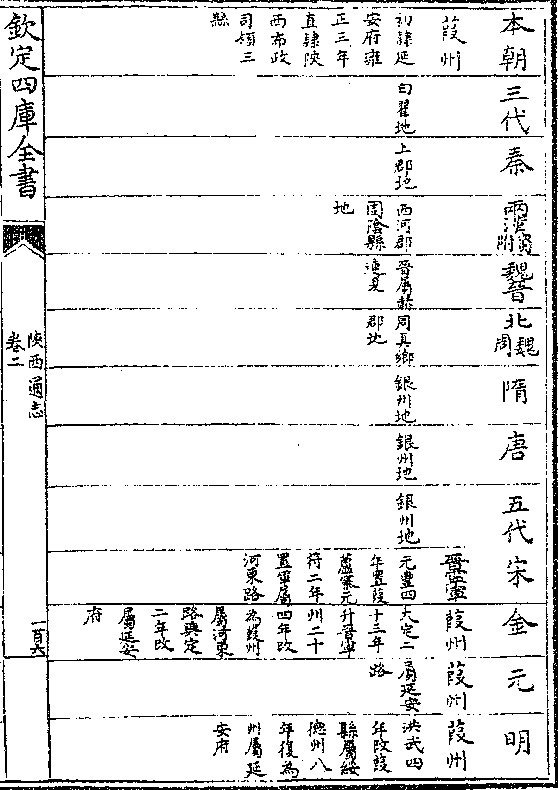 本朝
葭州
初隸延
安府雍
正三年
直隸陝
西布政
司領三
縣
三代
白翟地
秦
上郡地
兩漢
附
西河郡
圁陰縣
地
魏晉
晉屬赫
連夏
北魏周
周真鄉
郡地
隋
銀州地
唐
銀州地
五代
銀州地
宋
晉寧軍
元豐四
年置葭
蘆寨元
符二年
置軍屬
河東路
金
葭州
大定二
十二年
升晉寧
州二十
四年改
為葭州
屬河東
路興定
二年改
屬延安
府
元
葭州
屬延安
路
明
葭州
洪武四
年改葭
縣屬綏
德州八
年復為
州屬延
安府
欽定四庫全書
陝西通志
卷二
一百六